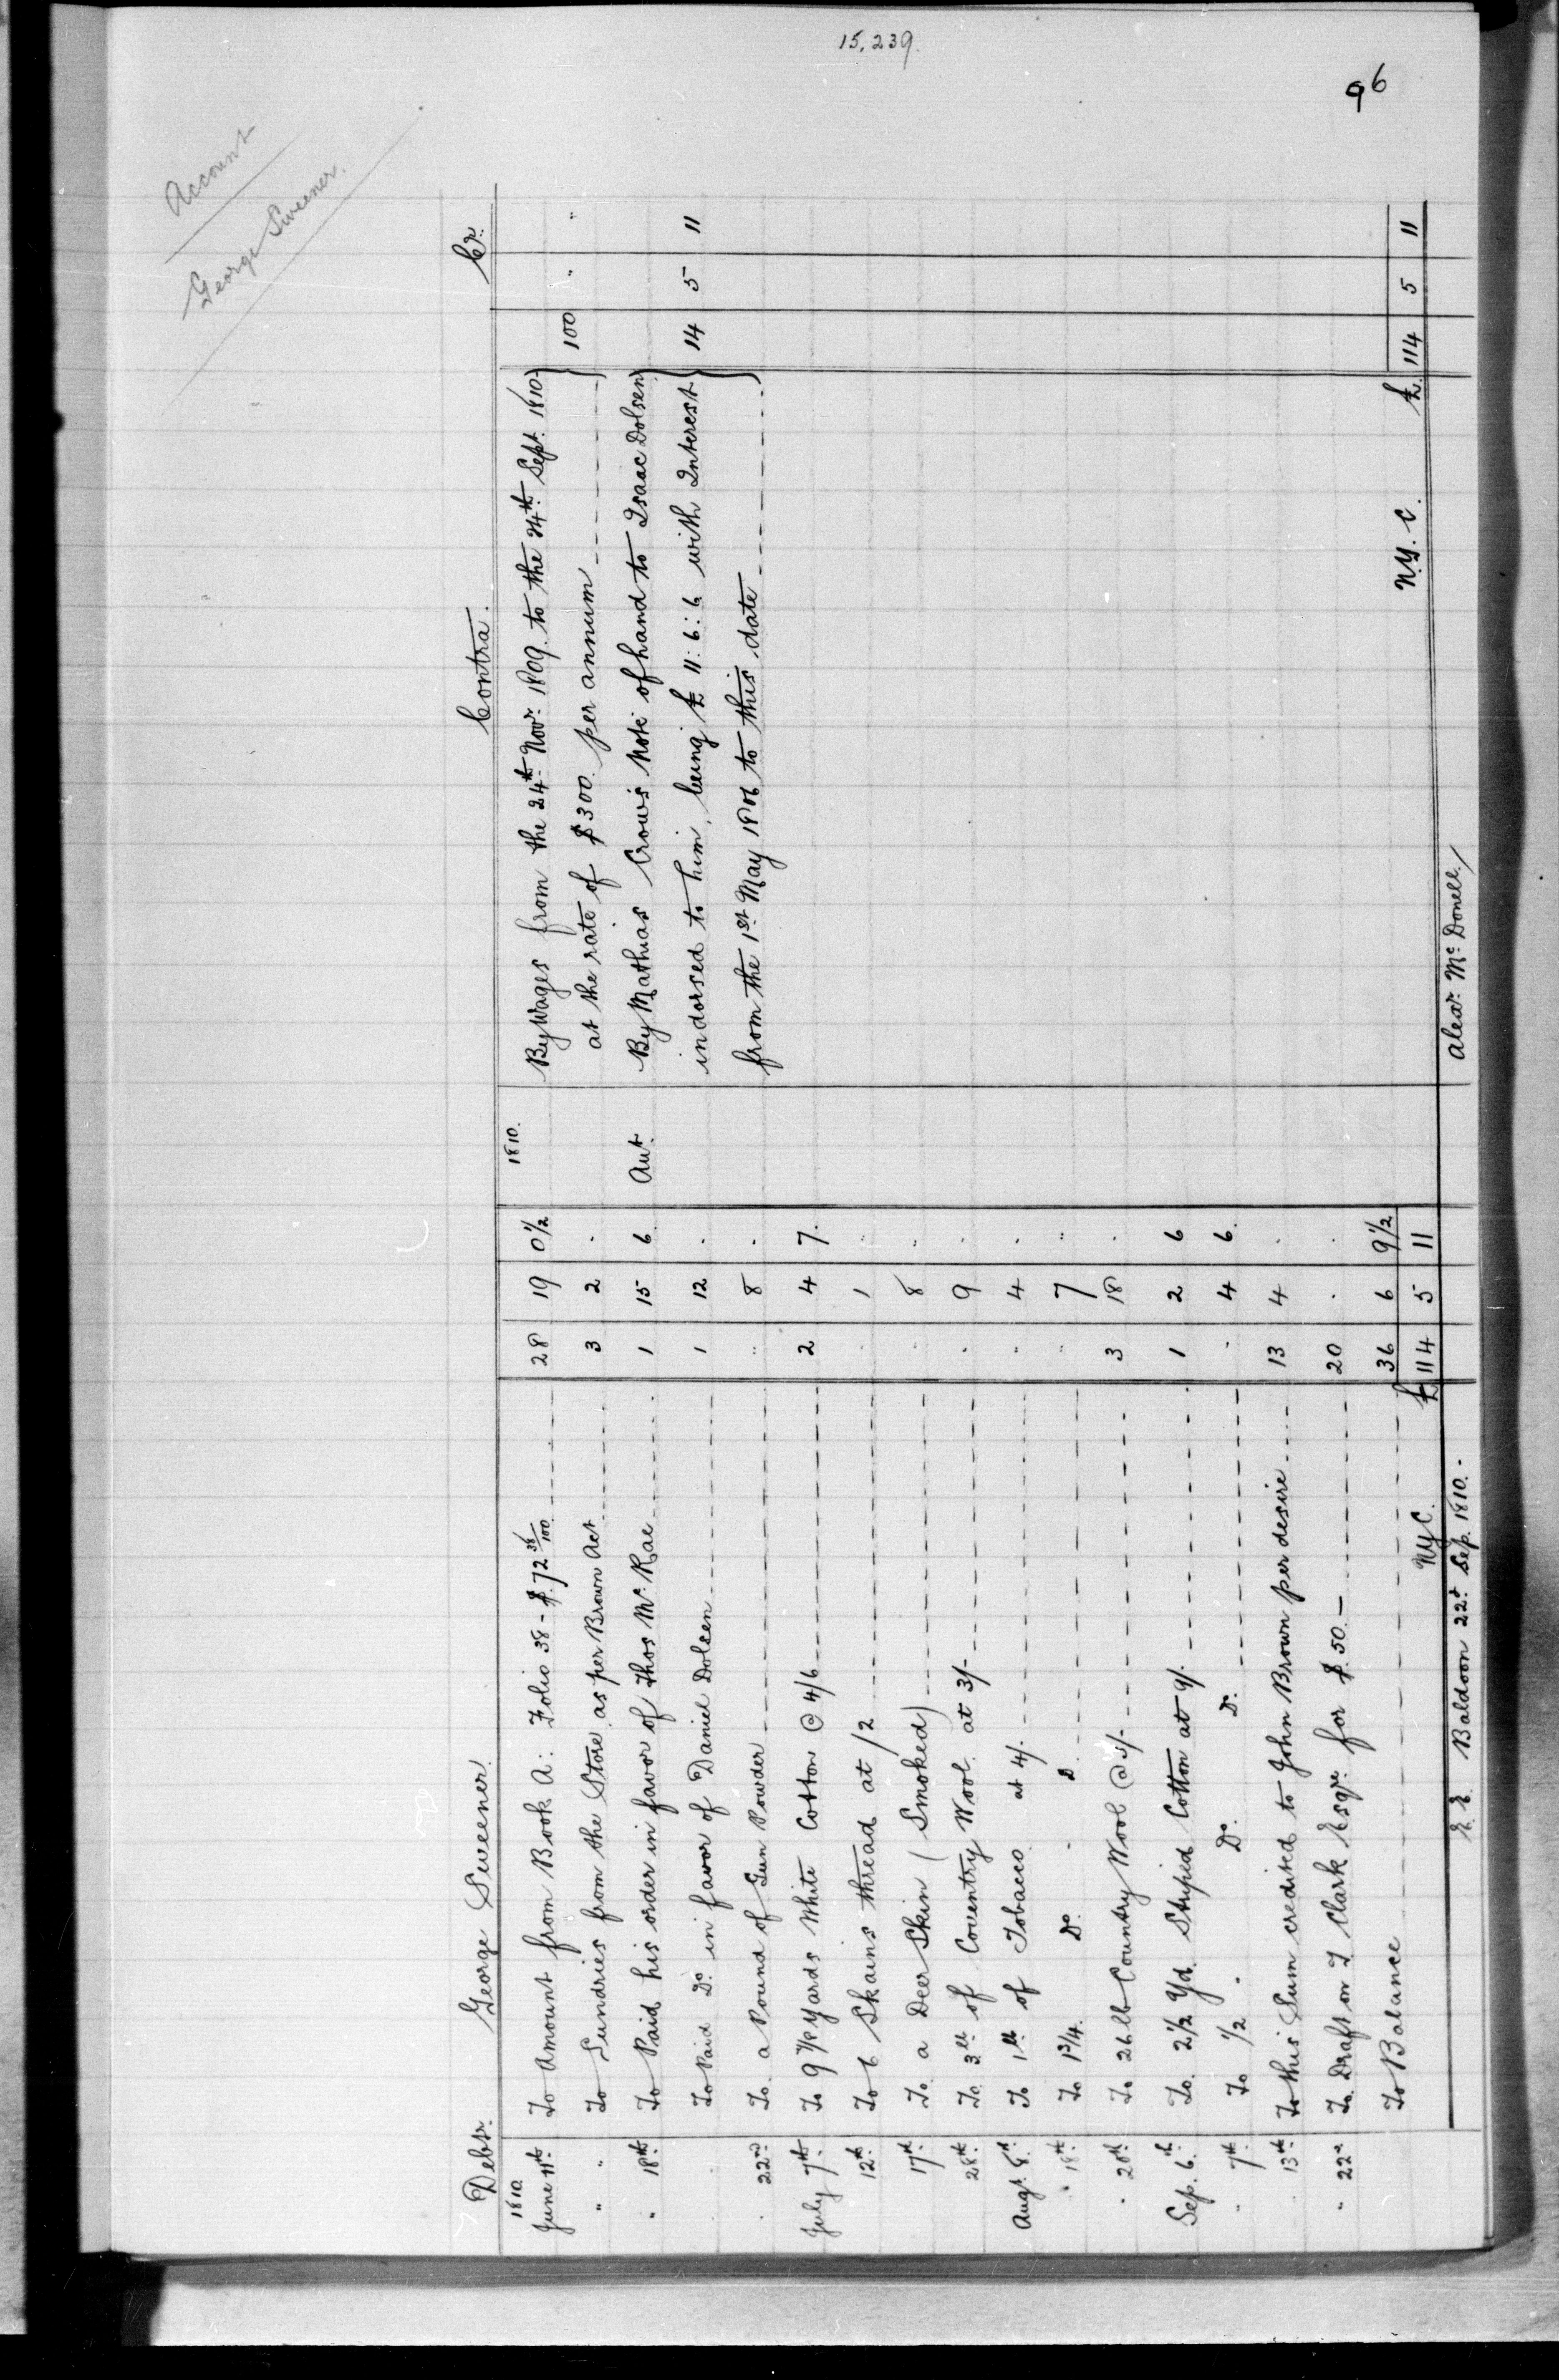 15,239.
96
Account
George Sweener.
Debtr. George Sweener.
1810.
June 11th To Amount from Book A: Folio 38 - $.72 38/100 28 19 0 1/2
" " To Sundries from the Store as per Brown Act 3 2 .
" 18th To Paid his order in favor of Thos Mc. Rae 1 15 6
To Paid Do. in favor of Daniel Dolsen 1 12 .
. 22nd To a Pound of Gun Powder " 8 .
July 7th To 9 7/8 Yards White Cotton @ 4/6 2 4 7.
12th To 6 Skains thread at /2 . 1 "
17th To a Deer Skin (Smoked) . 8 "
28th To 3lb of Coventry Wool at 3/- . 9 .
Augt. 8th To 1lb of Tobacco at 4/. " 4 .
" 18th To 1 3/4. Do. . D. " 7 "
. 20th To 26 lb Country Wool @ 3/- 3 18 .
Sep. 6th To 2 1/2 Yd. Striped Cotton at 9/. 1 2 6
" 7th To 1/2 . Do. Do. . 4 6.
. 13th To this Sum credited to John Brown per desire 13 4 .
" 22nd To Draft on T Clark Esqr. for $.50.- 20 . .
To Balance 36 6 9 1/2
NyC. £ 114 5 11
E. E. Baldoon 22d. Sep. 1810.-
Contra. Cr.
1810.
By Wages from the 24th Novr. 1809. to the 24th Sept. 1810
at the rate of $300. per annum 100 " "
Aut. By Mathias Crow's Note of hand to Isaac Dolsen
indorsed to him, being £ 11:6:6 with Interest 14 5 11
from the 1st May 1806 to this date
N.Y.C. £. 114 5 11
Alexr. Mc. Donell,